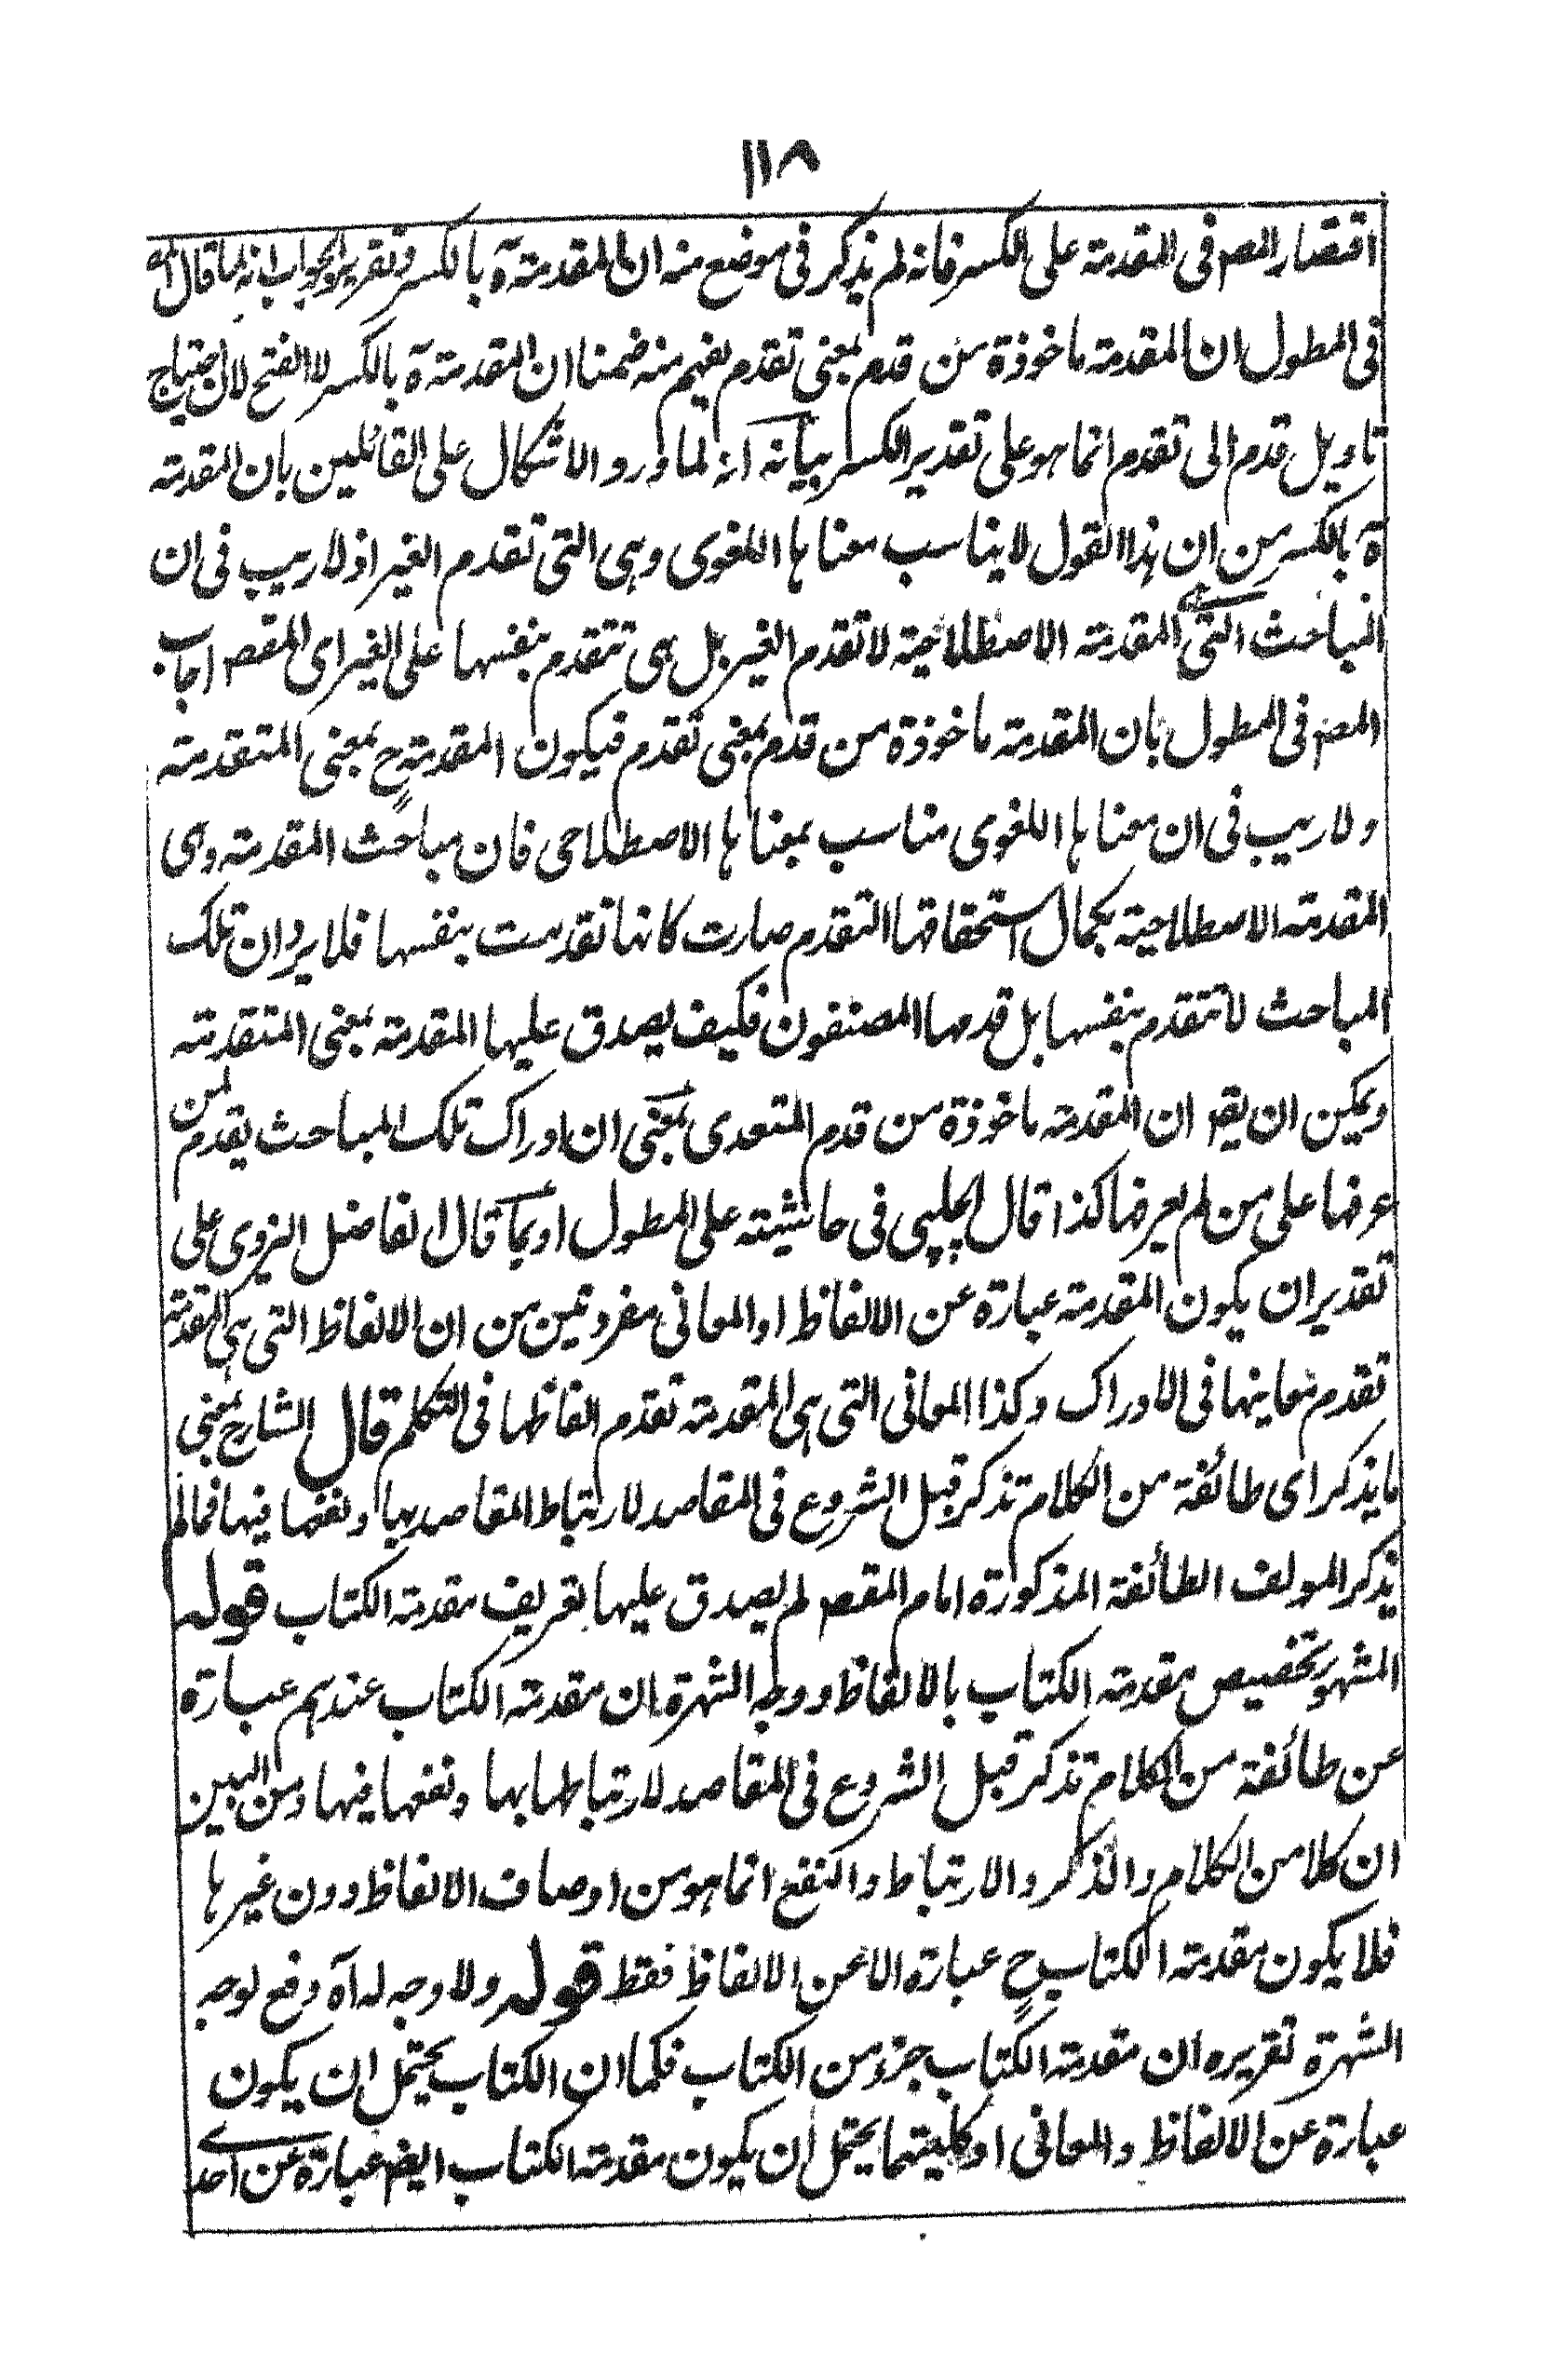 ١١٨
اقتصار المصم فى المقدمة على الكسر فانه لم يذكر فى موضع منه ان المقدمة آه بالكسر وتقرير الجواب انه لما قال المصم
فى المطول ان المقدمة ماخوذة من قدم بمعنى تقدم يفهم منه ضمنا ان المقدمة آه بالكسر لا الفتح لان احتياج
تاويل قدم الى تقدم انما هو على تقدير الكسر بيانه انه لما ورد الاشكال على القائلين بان المقدمة
آه بالكسر من ان هذا القول لا يناسب معناها اللغوى وهى التى تقدم الغير اذ لا ريب فى ان
المباحث التى هى المقدمة الاصطلاحية لا تقدم الغير بل هى تتقدم بنفسها على الغير اى المقصم اجاب
المصم فى المطول بان المقدمة ماخوذة من قدم بمعنى تقدم فيكون المقدمة ح بمعنى المتقدمة
ولا ريب فى ان معناها اللغوى مناسب بمعناها الاصطلاحى فان مباحث المقدمة وهى
المقدمة الاصطلاحية بكمال استحقاقها التقدم صارت كانها تقدمت بنفسها فلا يرد ان تلك
المباحث لا تتقدم بنفسها بل قدمها المصنفون فكيف يصدق عليها المقدمة بمعنى المتقدمة
ويمكن ان يقم ان المقدمة ماخوذة من قدم المتعدى بمعنى ان ادراك تلك المباحث يقدم من
عرفها على من لم يعرفها كذا قال الچلپى فى حاشيته على المطول او بما قال الفاضل اليزدى على
تقدير ان يكون المقدمة عبارة عن الالفاظ او المعانى مفردتين من ان الالفاظ التى هى المقدمة
تقدم معانيها فى الادراك وكذا المعانى التى هى المقدمة تقدم الفاظها فى التكلم قال الشارح بمعنى
ما يذكر اى طائفة من الكلام تذكر قبل الشروع فى المقاصد لارتباط المقاصد بها ونفعها فيها فما لم
يذكر المولف الطائفة المذكورة امام المقصم لم يصدق عليها تعريف مقدمة الكتاب قوله
المشهور تخصيص مقدمة الكتاب بالالفاظ ووجه الشهرة ان مقدمة الكتاب عندهم عبارة
عن طائفة من الكلام تذكر قبل الشروع فى المقاصد لارتباطها بها ونفعها فيها ومن البين
ان كلا من الكلام والذكر والارتباط والنفع انما هو من اوصاف الالفاظ دون غيرها
فلا يكون مقدمة الكتاب ح عبارة الا عن الالفاظ فقط قوله ولا وجه له آه دفع لوجه
الشهرة تقريره ان مقدمة الكتاب جزو من الكتاب فكما ان الكتاب يحتمل ان يكون
عبارة عن الالفاظ والمعانى او كليتهما يحتمل ان يكون مقدمة الكتاب ايضم عبارة عن احدى